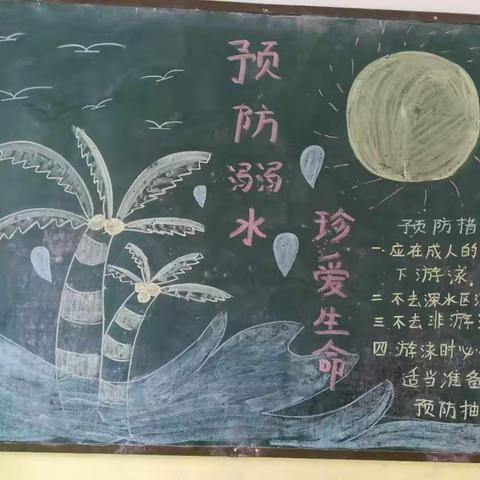 预防溺水
珍爱生命
预防措
一.应在成人的
下游泳.
二.不去深水区
三.不去非游
四.游泳时必
适当准备
预防抽